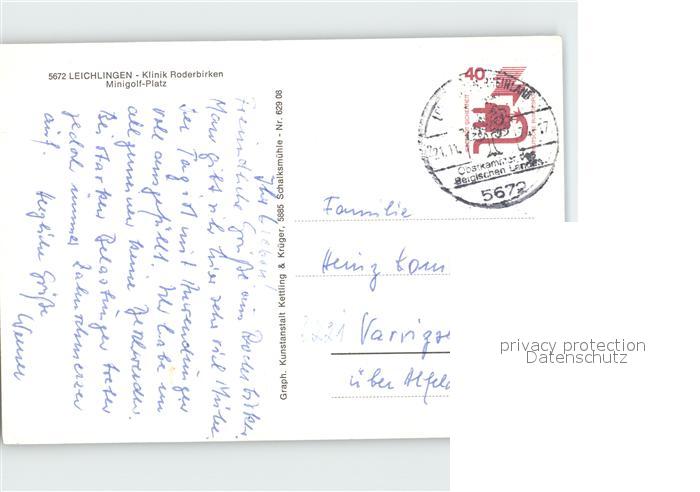 5672 LEICHLINGEN - Klinik Roderbirken
Minigolf-Platz
Ihr Lieben!
Freundliche Grüße aus Roderbirken.
Man gibt sich hier sehr viel Mühe.
Der Tag ist mit Anwendungen
voll ausgefüllt. Ich habe im
allgemeinen keine Beschwerden.
Bei starken Belastungen treten
jedoch immer Zahnschmerzen
auf. Herzliche Grüße
Werner
Graph. Kunstanstalt Kettling & Krüger, 5885 Schalksmühle - Nr. 629 08
40
RHEINLAND
Obstkammer des
Bergischen Landes
5672
Familie
Heinz
3221
über Alfeld
privacy protection
Datenschutz